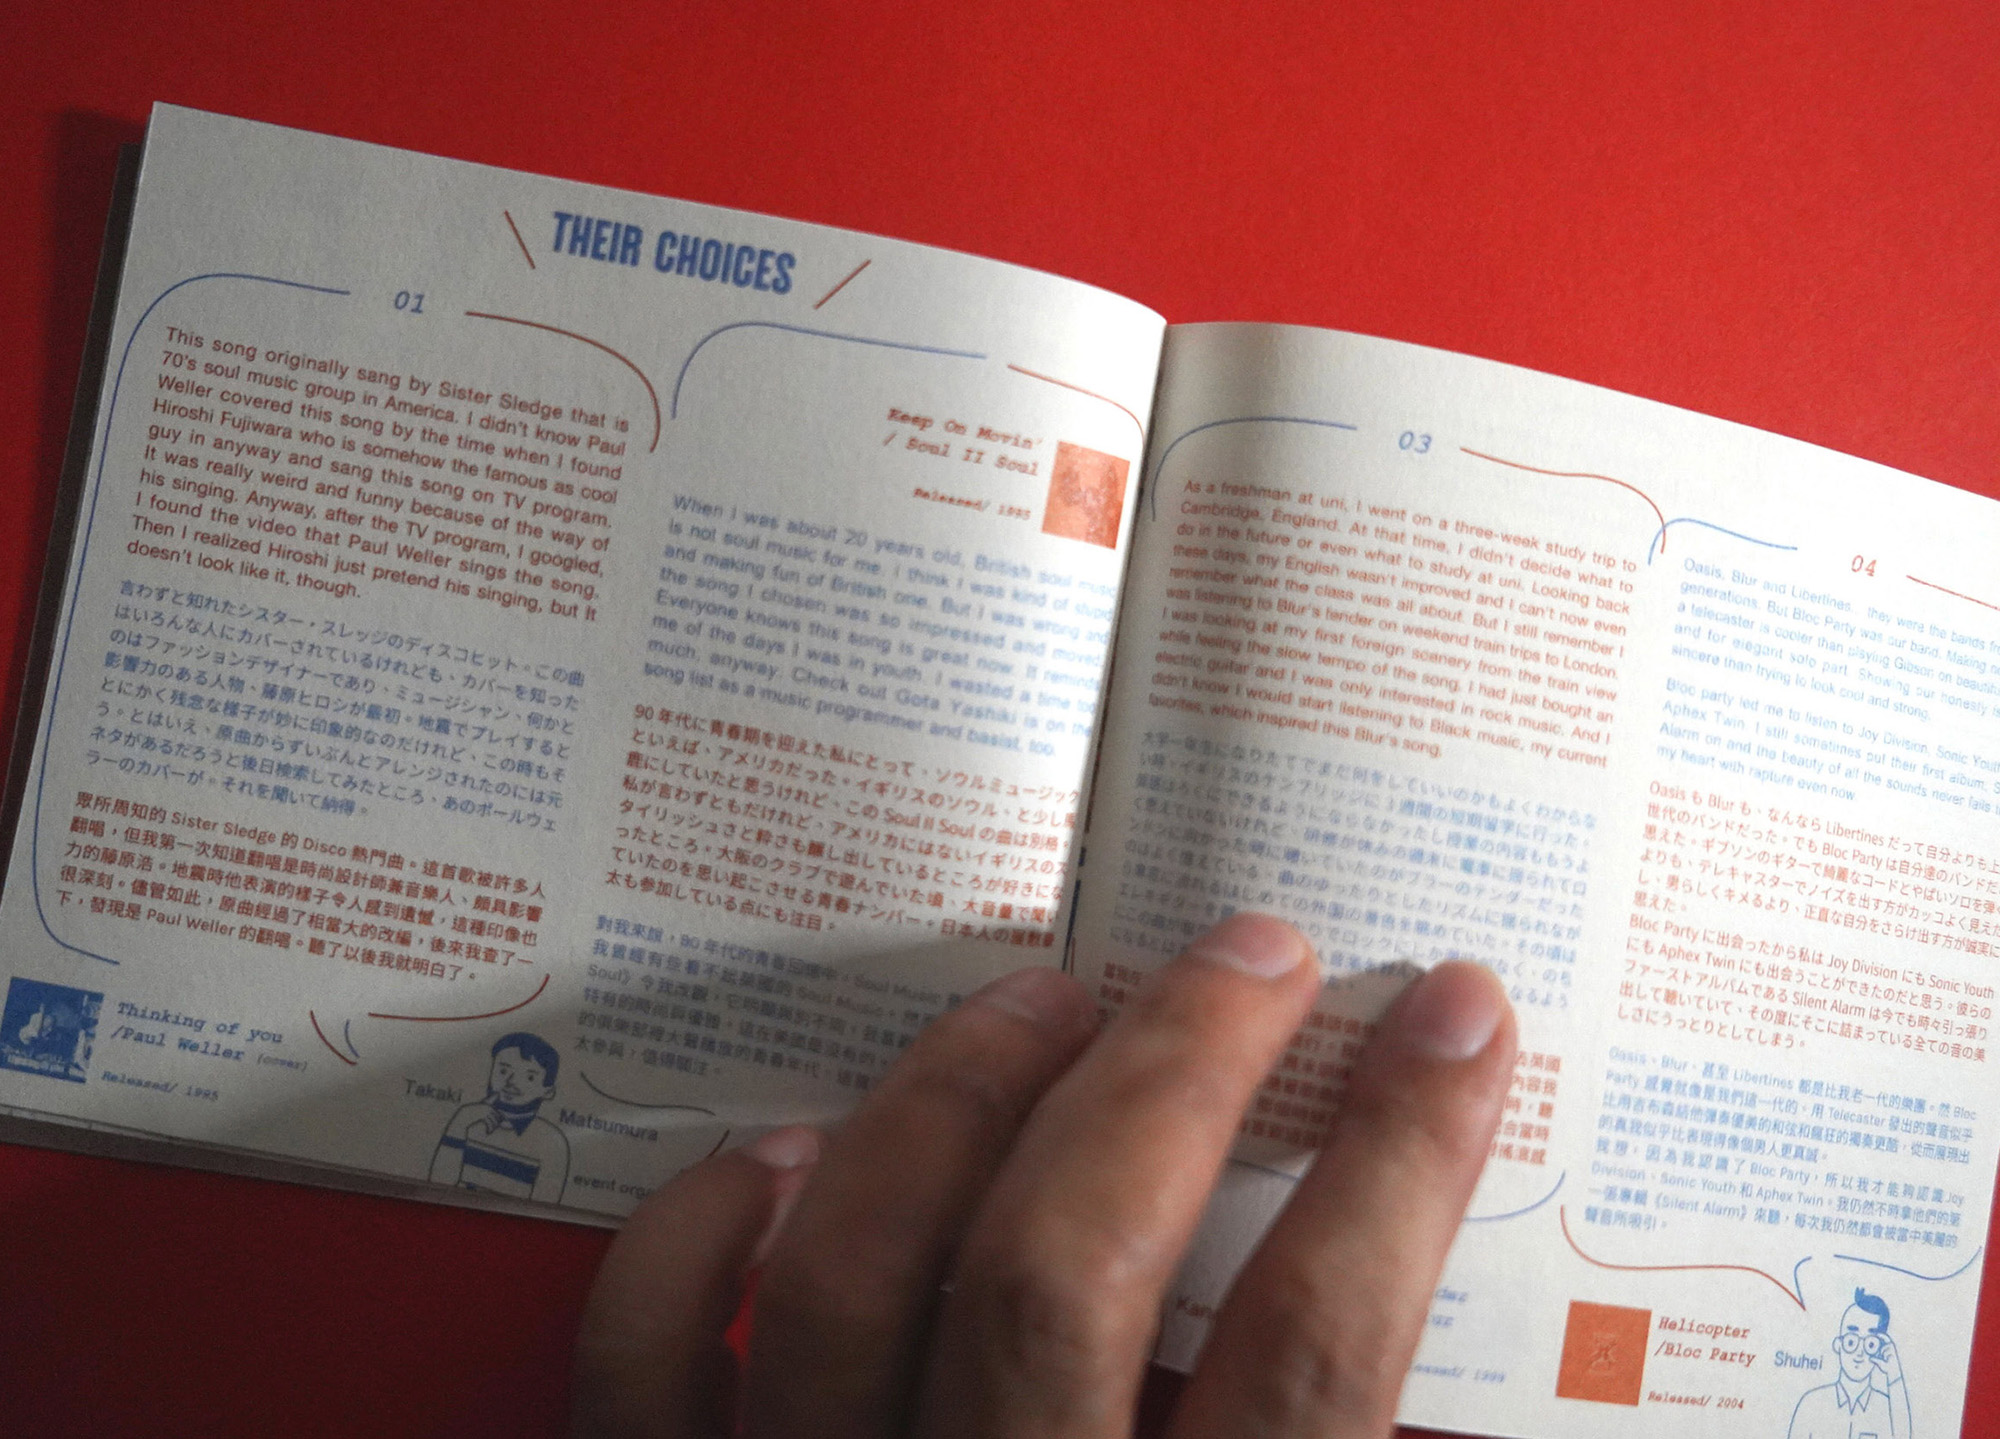 THEIR CHOICES
01
This song originally sang by Sister Sledge that is
70's soul music group in America. I didn't know Paul
Weller covered this song by the time when I found
Hiroshi Fujiwara who is somehow the famous as cool
guy in anyway and sang this song on TV program.
It was really weird and funny because of the way of
his singing. Anyway, after the TV program, I googled,
I found the video that Paul Weller sings the song.
Then I realized Hiroshi just pretend his singing, but It
doesn't look like it, though.
言わずと知れたシスター・スレッジのディスコヒット。この曲
はいろんな人にカバーされているけれども、カバーを知った
のはファッションデザイナーであり、ミュージシャン、何かと
影響力のある人物、藤原ヒロシが最初。地震でプレイすると
とにかく残念な様子が妙に印象的なのだけれど、この時もそ
う。とはいえ、原曲からずいぶんとアレンジされたのには元
ネタがあるだろうと後日検索してみたところ、あのポールウェ
ラーのカバーが。それを聞いて納得。
眾所周知的 Sister Sledge 的 Disco 熱門曲。這首歌被許多人
翻唱，但我第一次知道翻唱是時尚設計師兼音樂人、頗具影響
力的藤原浩。地震時他表演的樣子令人感到遺憾，這種印象也
很深刻。儘管如此，原曲經過了相當大的改編，後來我查了一
下，發現是 Paul Weller 的翻唱。聽了以後我就明白了。
Thinking of you
/Paul Weller (cover)
Released/ 1995
Takaki
Matsumura
event orga
Keep On Movin'
/ Soul II Soul
Released/ 1995
When I was about 20 years old, British soul music
is not soul music for me. I think I was kind of stupid
and making fun of British one. But I was wrong and
the song I chosen was so impressed and moved.
Everyone knows this song is great now. It reminds
me of the days I was in youth. I wasted a time too
much, anyway. Check out Gota Yashiki is on the
song list as a music programmer and basist, too.
90 年代に青春期を迎えた私にとって、ソウルミュージック
といえば、アメリカだった。イギリスのソウル、と少し馬
鹿にしていたと思うけれど、この Soul II Soul の曲は別格。
私が言わずともだけれど、アメリカにはないイギリスのス
タイリッシュさと粋さも醸し出しているところが好きにな
ったところ。大阪のクラブで遊んでいた頃、大音量で聞い
ていたのを思い起こさせる青春ナンバー。日本人の屋敷豪
太も参加している点にも注目。
對我來說，90 年代的青春回憶中，Soul Music
我曾經有些看不起英國的 Soul Music，然而
Soul》令我改觀，它明顯與別不同，我喜歡
特有的時尚與優雅，這在美國是沒有的。
的俱樂部裡大聲播放的青春年代，這
太參與，值得關注。
03
As a freshman at uni, I went on a three-week study trip to
Cambridge, England. At that time, I didn't decide what to
do in the future or even what to study at uni. Looking back
these days, my English wasn't improved and I can't now even
remember what the class was all about. But I still remember I
was listening to Blur's tender on weekend train trips to London.
I was looking at my first foreign scenery from the train view
while feeling the slow tempo of the song. I had just bought an
electric guitar and I was only interested in rock music. And I
didn't know I would start listening to Black music, my current
favorites, which inspired this Blur's song.
大学一年生になりたてでまだ何をしていいのかもよくわからな
い時、イギリスのケンブリッジに 3 週間の短期留学に行った。
英語はろくにできるようにならなかったし授業の内容ももうよ
く覚えていないけれど、研修が休みの週末に電車に揺られてロ
ンドンに向かった時に聴いていたのがブラーのテンダーだった
のはよく覚えている。曲のゆったりとしたリズムに揺られなが
ら車窓に流れるはじめての外国の景色を眺めていた。その頃は
エレキギターを
かりでロックにしか興味がなく、のち
にこの曲が
なるよう
になるとは
Kana
Released/ 1999
04
Oasis, Blur and Libertines.. they were the bands fr
generations. But Bloc Party was our band. Making no
a telecaster is cooler than playing Gibson on beautifu
and for elegant solo part. Showing our honesty is
sincere than trying to look cool and strong.
Bloc party led me to listen to Joy Division, Sonic Youth
Aphex Twin. I still sometimes put their first album, S
Alarm on and the beauty of all the sounds never fails t
my heart with rapture even now.
Oasis も Blur も、なんなら Libertines だって自分よりも上
世代のバンドだった。でも Bloc Party は自分達のバンドだ
思えた。ギブソンのギターで綺麗なコードとやばいソロを弾く
よりも、テレキャスターでノイズを出す方がカッコよく見えた
し、男らしくキメるより、正直な自分をさらけ出す方が誠実に
思えた。
Bloc Party に出会ったから私は Joy Division にも Sonic Youth
にも Aphex Twin にも出会うことができたのだと思う。彼らの
ファーストアルバムである Silent Alarm は今でも時々引っ張り
出して聴いていて、その度にそこに詰まっている全ての音の美
しさにうっとりとしてしまう。
Oasis、Blur，甚至 Libertines 都是比我老一代的樂團。然 Bloc
Party 感覺就像是我們這一代的。用 Telecaster 發出的聲音似乎
比用吉布森結他彈奏優美的和弦和瘋狂的獨奏更酷，從而展現出
的真我似乎比表現得像個男人更真誠。
我想，因為我認識了 Bloc Party，所以我才能夠認識 Joy
Division、Sonic Youth 和 Aphex Twin。我仍然不時拿他們的第
一張專輯《Silent Alarm》來聽，每次我仍然都會被當中美麗的
聲音所吸引。
Helicopter
/Bloc Party
Released/ 2004
Shuhei